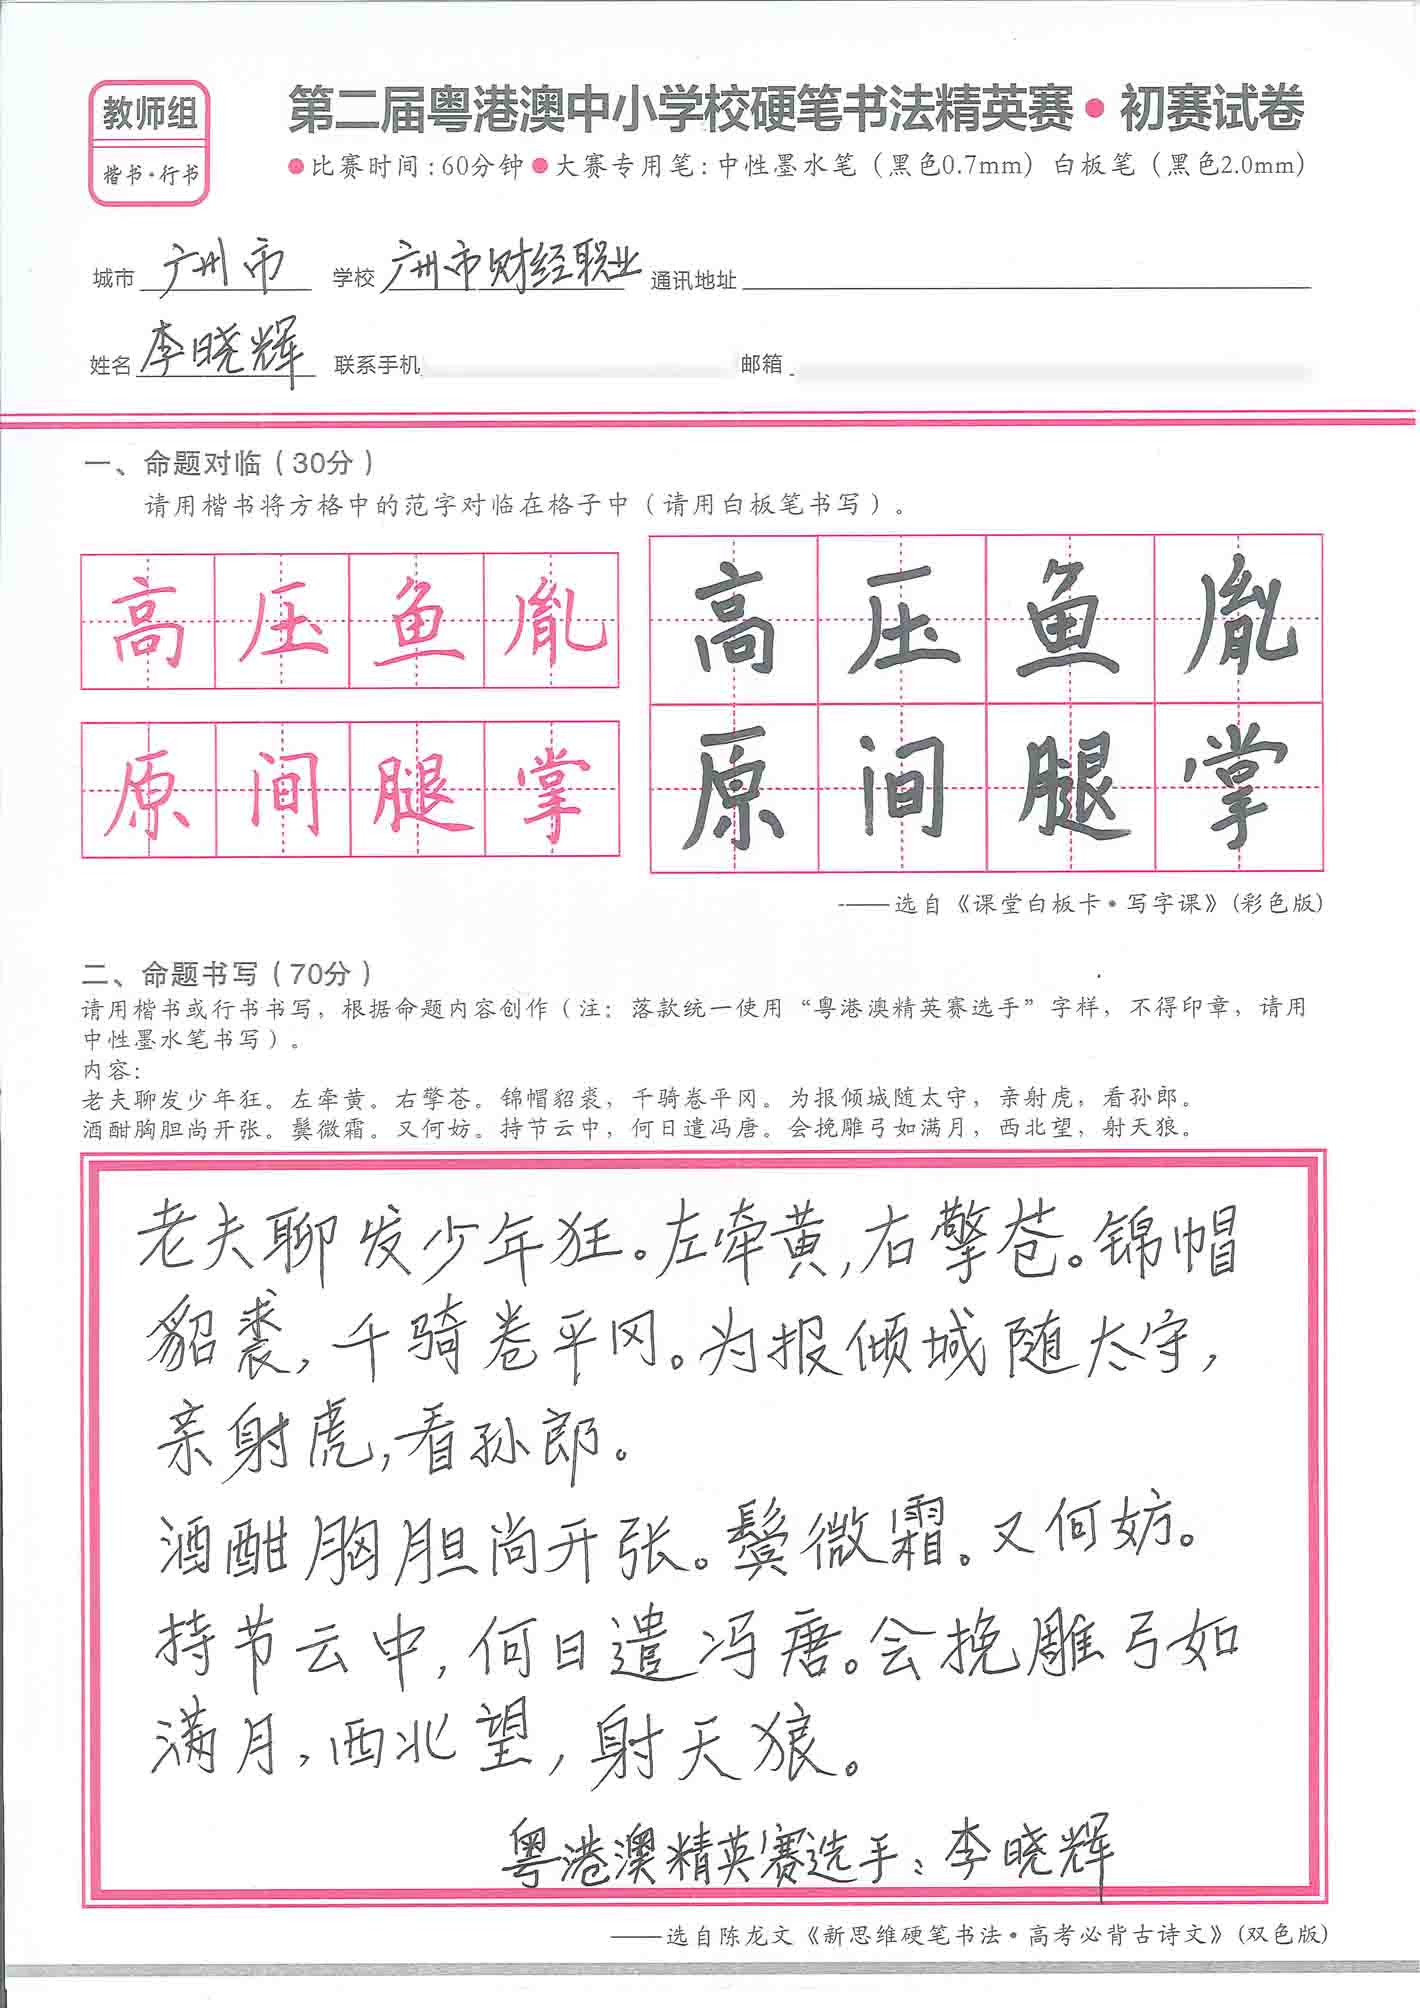 教师组
楷书·行书
第二届粤港澳中小学校硬笔书法精英赛·初赛试卷
●比赛时间:60分钟●大赛专用笔:中性墨水笔（黑色0.7mm）白板笔（黑色2.0mm）
城市 广州市 学校 广州市财经职业 通讯地址
姓名 李晓辉 联系手机 邮箱
一、命题对临（30分）
请用楷书将方格中的范字对临在格子中（请用白板笔书写）。
高压鱼胤
原间腿掌
高压鱼胤
原间腿掌
——选自《课堂白板卡·写字课》(彩色版)
二、命题书写（70分）
请用楷书或行书书写，根据命题内容创作（注：落款统一使用“粤港澳精英赛选手”字样，不得印章，请用
中性墨水笔书写）。
内容：
老夫聊发少年狂。左牵黄。右擎苍。锦帽貂裘，千骑卷平冈。为报倾城随太守，亲射虎，看孙郎。
酒酣胸胆尚开张。鬓微霜。又何妨。持节云中，何日遣冯唐。会挽雕弓如满月，西北望，射天狼。
老夫聊发少年狂。左牵黄，右擎苍。锦帽
貂裘，千骑卷平冈。为报倾城随太守，
亲射虎，看孙郎。
酒酣胸胆尚开张。鬓微霜。又何妨。
持节云中，何日遣冯唐。会挽雕弓如
满月，西北望，射天狼。
粤港澳精英赛选手：李晓辉
——选自陈龙文《新思维硬笔书法·高考必背古诗文》(双色版)